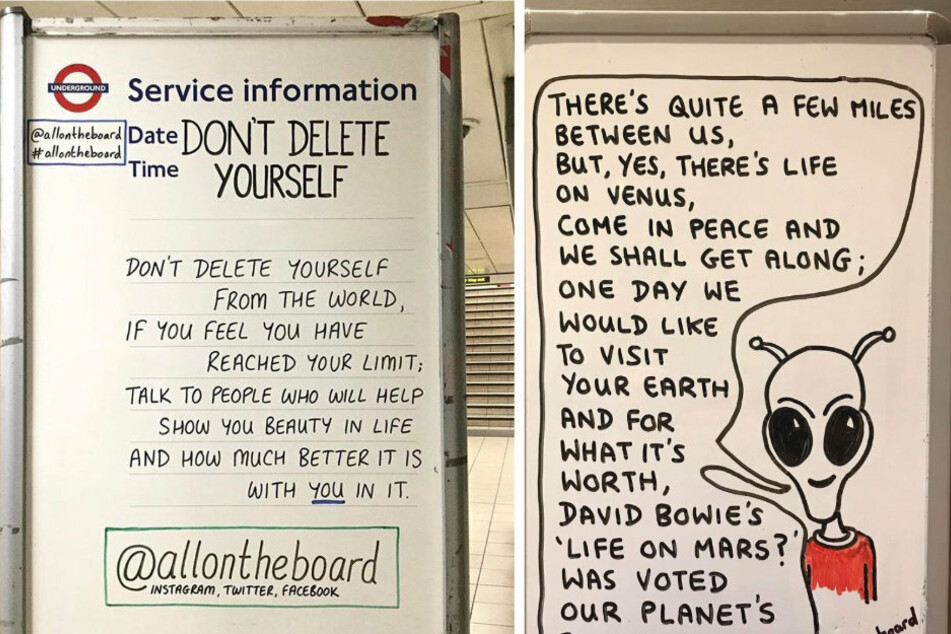 UNDERGROUND
Service information
@allontheboard
#allontheboard
Date DON'T DELETE
Time YOURSELF
DON'T DELETE YOURSELF
FROM THE WORLD,
IF YOU FEEL YOU HAVE
REACHED YOUR LIMIT;
TALK TO PEOPLE WHO WILL HELP
SHOW YOU BEAUTY IN LIFE
AND HOW MUCH BETTER IT IS
WITH YOU IN IT.
@allontheboard
INSTAGRAM, TWITTER, FACEBOOK
THERE'S QUITE A FEW MILES
BETWEEN US,
BUT, YES, THERE'S LIFE
ON VENUS,
COME IN PEACE AND
WE SHALL GET ALONG;
ONE DAY WE
WOULD LIKE
TO VISIT
YOUR EARTH
AND FOR
WHAT IT'S
WORTH,
DAVID BOWIE'S
'LIFE ON MARS?'
WAS VOTED
OUR PLANET'S